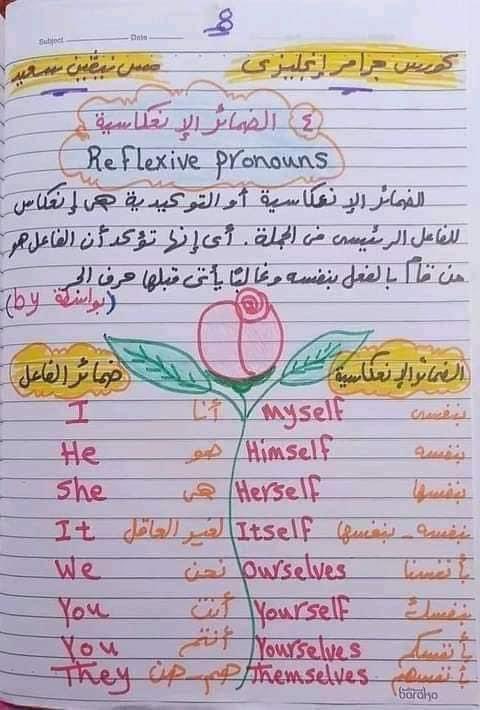 8
Subject Date
كورس جرامر إنجليزى
مس نيڤين سعيد
٤ الضمائر الإنعكاسية
Reflexive pronouns
الضمائر الإنعكاسية أو التوكيدية هى إنعكاس
للفاعل الرئيسى من الجملة. أى إنها تؤكد أن الفاعل هو
من قام بالفعل بنفسه وغالبًا يأتى قبلها حرف الجر
(by بواسطة)
ضمائر الفاعل الضمائر الإنعكاسية
I أنا Myself بنفسى
He هو Himself بنفسه
She هى Herself بنفسها
It لغير العاقل Itself بنفسه - بنفسها
We نحن Ourselves بأنفسنا
You أنت Yourself بنفسك
You أنتم Yourselves بأنفسكم
They هم - هن Themselves بأنفسهم
baraka